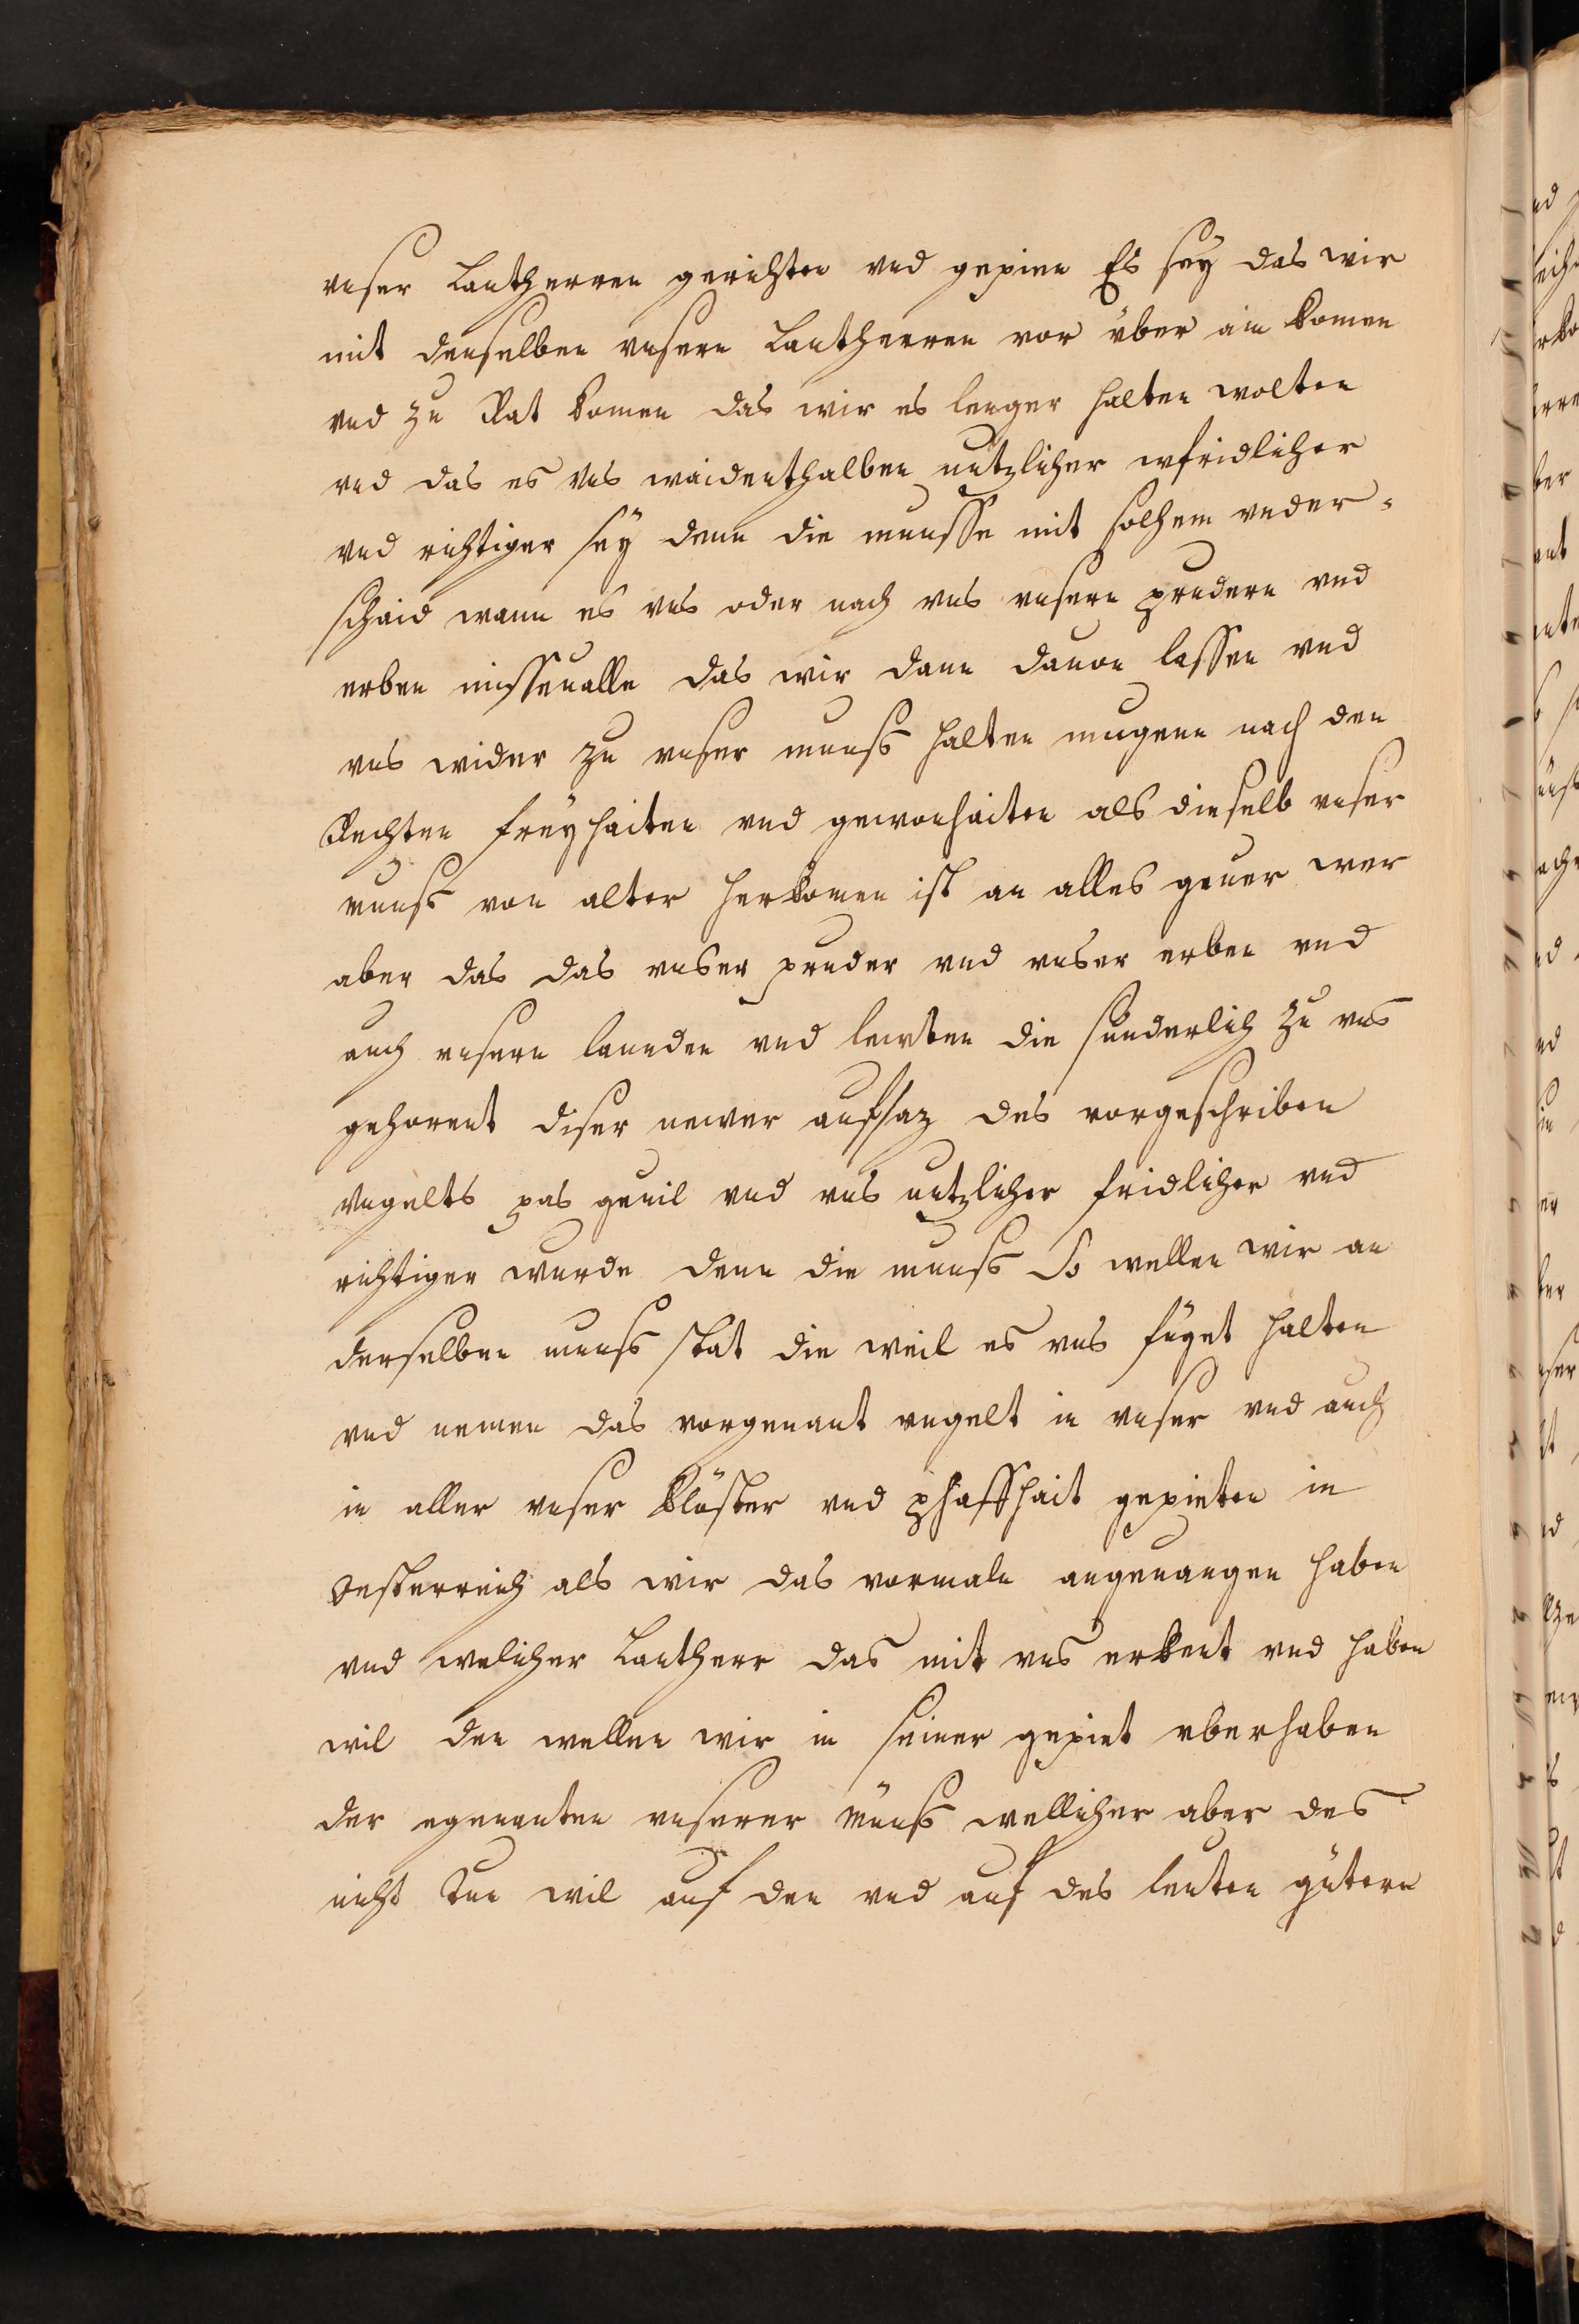 vnser Lantherren gerichten vnd gepieen Es seÿ das wir
mit denselben vnsern Lantherren vor vber ain komen
vnd zu Rat komen das wir es lenger halten wolten
vnd das es vns waidenthalben nutzlicher vfridlicher
vnd richtiger seÿ denn die munsse mit solhem vnder=
schaid wann es vns oder nach vns vnsern prudern vnd
erben misseualle das wir dann dauon lassen vnd
vns wider zu vnser munss halten mugenn nach den
Rechten freÿhaiten vnd gewonhaiten als dieselb vnser
munss von alter herkomen ist an alles geuer wer
aber das das vnser pruder vnd vnser erben vnd
auch vnsern lannden vnd lewten die sunderlich zu vns
gehorent diser newer aufsaz des vorgeschriben
vngelts pas geuil vnd vns nutzlicher fridlicher vnd
richtiger wurde denn die munss So wellen wir an
derselben munss stat die weil es vns füget halten
vnd nemen das vorgenant vngelt in vnser vnd auch
in aller vnser klöster vnd phaffhait gepieten in
Oesterreich als wir das vormaln angeuangen haben
vnd welicher Lantherr das mit vns erkent vnd haben
wil den wellen wir in seiner gepiet vberhaben
der egenanten vnserer münss wellicher aber des
nicht tun wil auf den vnd auf des leuten gütern